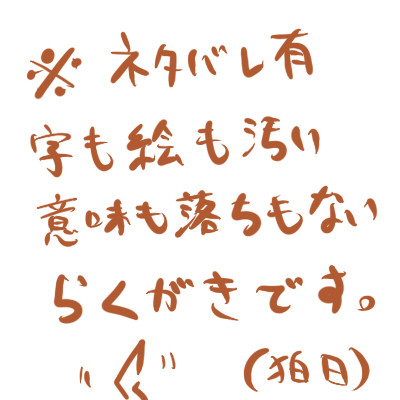 ※ ネタバレ有
字も絵も汚い
意味も落ちもない
らくがきです。
(狛日)